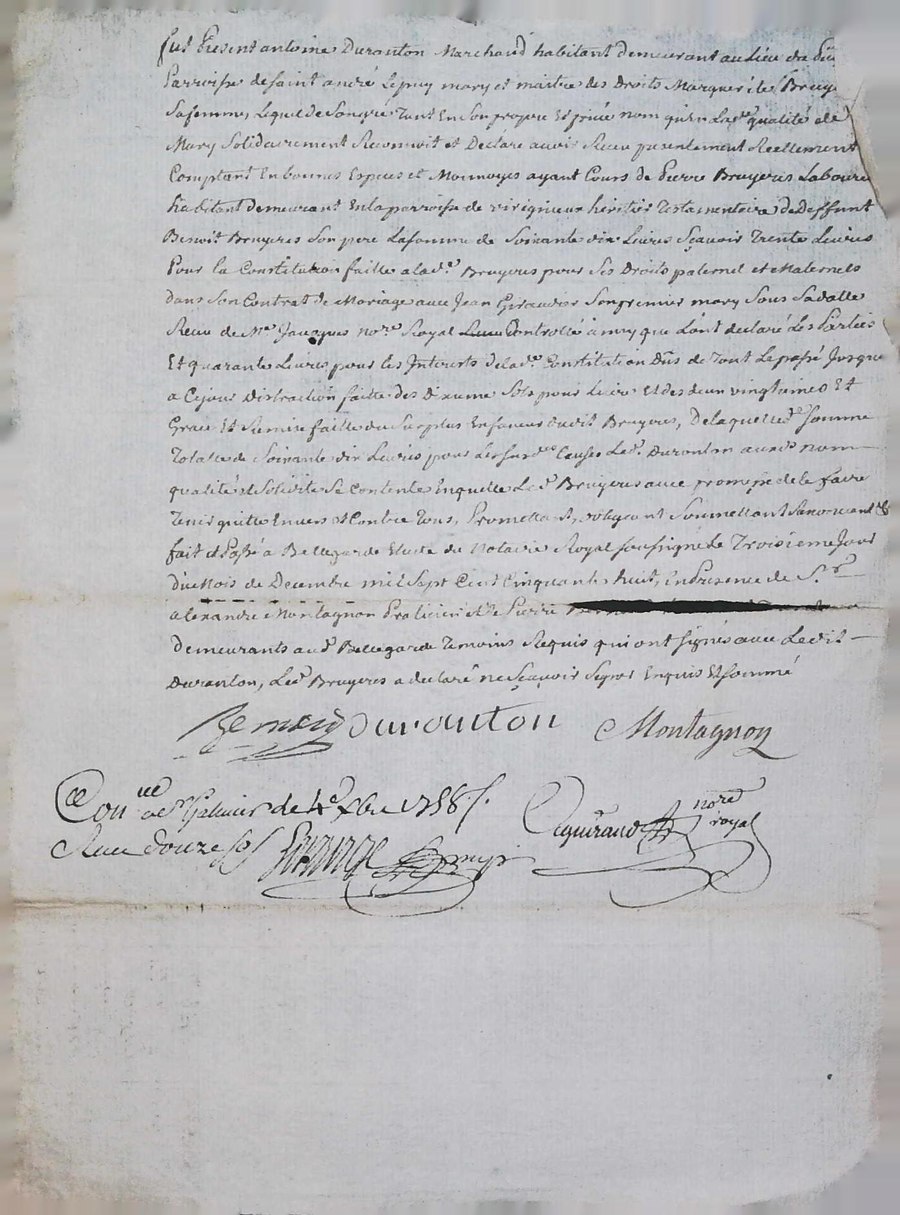 fut Présent antoine Duranton Marchand habitant demeurant au Lieu de
Parroisse de saint andré Lepuy mary et maitre des Droits Marguerite Bruye
Sa femme, Lequel de Son gré Tant En Son propre Et privé nom qu'En La de qualité de
Mary Solidairement Reconnoit et Déclare avoir Receu presentement Reellement
Comptant En bonnes Especes et Monnoyes ayant Cours de Pierre Bruyeres Laboure
habitant demeurant En la parroisse de virigneux héritier Testamentaire de Deffunt
Benoit Bruyeres Son pere La somme de Soixante dix Livres Sçavoir Trente Livres
Pour la Constitution faitte a lad.e Bruyeres pour Ses Droits paternel et Maternels
dans Son Contrat de Mariage avec Jean Giraudier Son premier mary Sous Sa datte
Receu de Me Jacques no.re Royal Controllé ainsy que L'ont declaré Les Parties
Et quarante Livres pour les Interests de lad.e Constitution Dûs de Tout Le passé Jusque
a Ce jour Distraction faitte des Dixieme Sols pour Livre Et des deux vingtiemes Et
Grace Et Remise faitte du Surplus En faveur dudit Bruyeres, De laquelle d.e Somme
Totalle de Soixante dix Livres pour Les susd.es Causes Led. Duranton auxd. nom
qualité et Solidité Se Contente En quitte Led. Bruyeres avec promesse de le faire
Tenir quitte Envers et Contre Tous, Promettant, obligeant Soumettant Renonceant &
fait et Passé à Bellegarde Etude du Notaire Royal soussigné Le Troisieme Jour
du Mois de Decembre mil Sept Cent Cinquante huit, En Presence de S.r
alexandre Montagnon Praticien et de Pierre
demeurants aud. Bellegarde Temoins Requis qui ont signés avec Ledit
Duranton, Led. Bruyeres a declaré ne Sçavoir Signer Enquis Et sommé
Duranton Montagnon
Con.né a St Galmier le 4e Xbre 1758
Receu douze sols
no.re royal